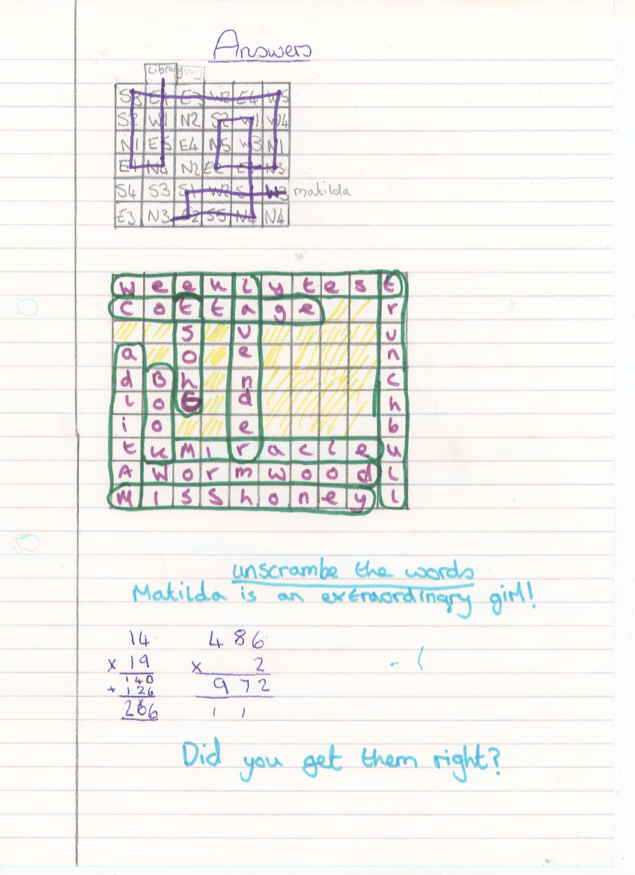 Answers
Library
S3 E4 E3 W2 E4 W5
S2 W1 N2 S2 W1 W4
N1 E5 E4 N5 W3 N1
E4 N4 N2 E2 N3
S4 S3 S1 W2 W3 matilda
E3 N3 S2 S5 N4 N4
w e e k l y t e s t
c o t t a g e r
s v u
a o e n
d B h n c
l o G d h
i o e b
t k M i r a c l e u
A W o r m w o o d l
M i s s h o n e y l
unscrambe the words
Matilda is an extraordinary girl!
14 486
x 19 x 2
140 972
+ 126 1 1
266
Did you get them right?